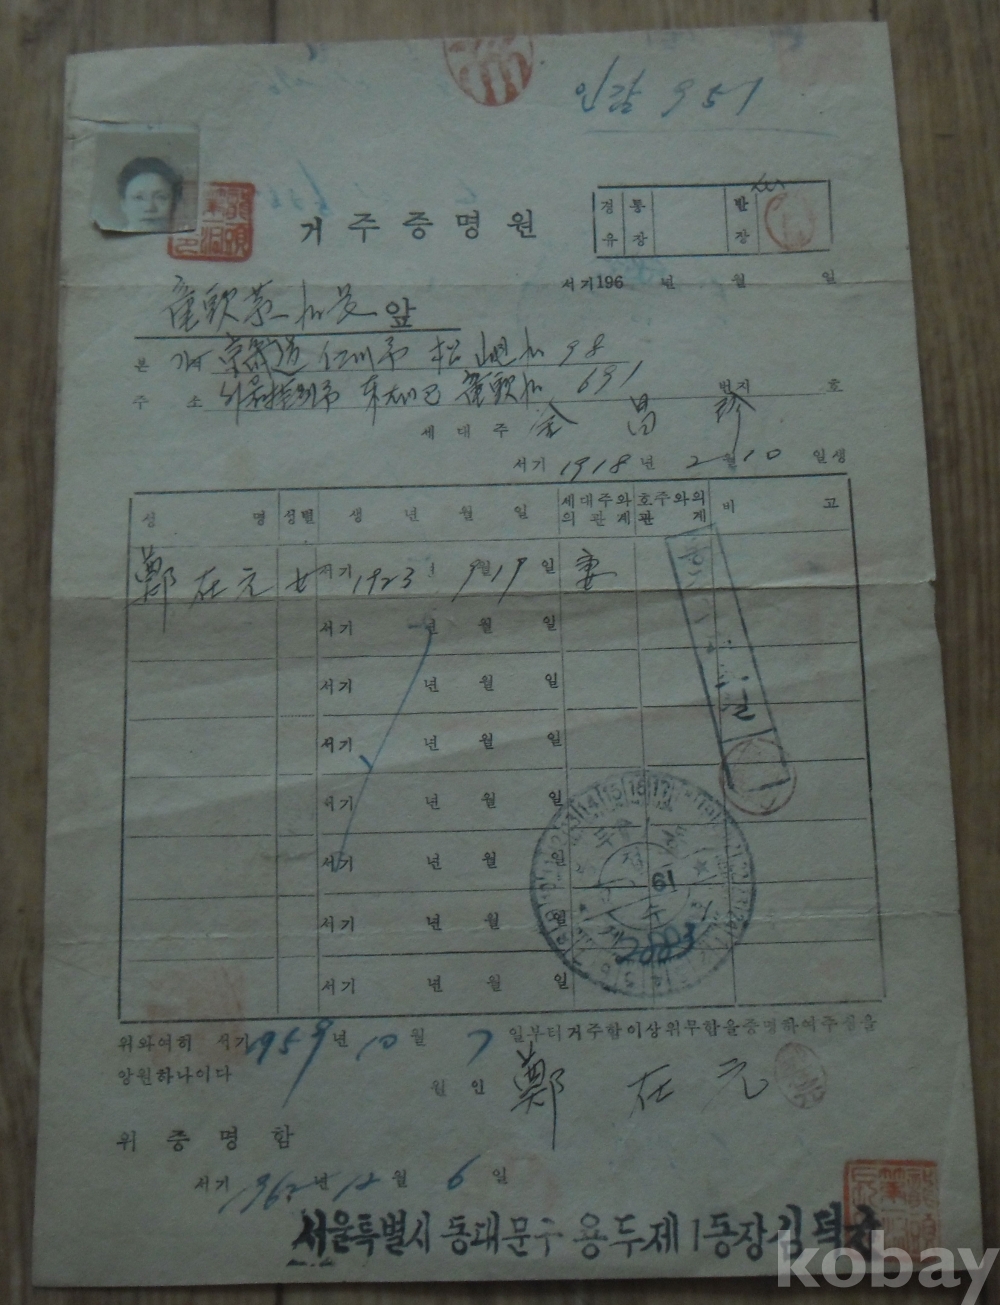 인감 951
거주증명원
경유 통장 반장
서기196 년 월 일
龍頭第一洞長 앞
본 적 京畿道 仁川市 松 98
주 소 서울特別市 東大門区 龍頭洞 691 번지 호
세대주 金昌
서기 1918년 2월 10일생
성 명 성별 생 년 월 일 세대주와의 관계 호주와의 관계 비 고
鄭在元 女 서기 1923년 9월 19일 妻
서기 년 월 일
서기 년 월 일
서기 년 월 일
서기 년 월 일
서기 년 월 일
서기 년 월 일
서기 년 월 일
61
2003
위와여히 서기 1959년 10월 7일부터 거주함이상위무함을증명하여주심을
앙원하나이다
원인 鄭在元
위 증명함
서기 1962년 12월 6일
서울특별시 동대문구 용두제1동장
kobay